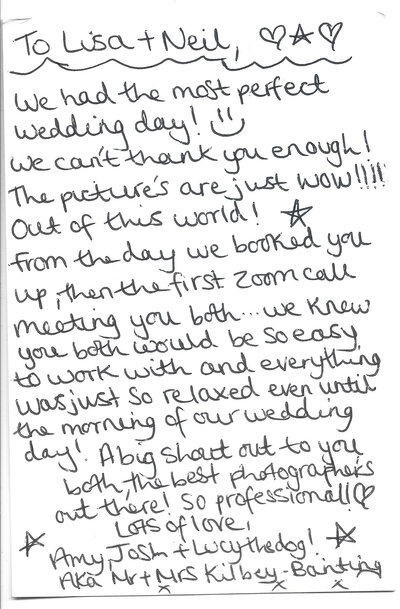 To Lisa + Neil, ♡☆♡
We had the most perfect
wedding day! :)
We can't thank you enough!
The picture's are just WOW!!!!
Out of this world! ☆
From the day we booked you
up, then the first zoom call
meeting you both...we knew
you both would be so easy
to work with and everything
was just so relaxed even until
the morning of our wedding
day! A big shout out to you
both, the best photographers
out there! So professional!! ♡
Lots of love,
☆ Amy, Josh + Lucy the dog! ☆
Aka Mr + Mrs Kilbey-Banting
x x x